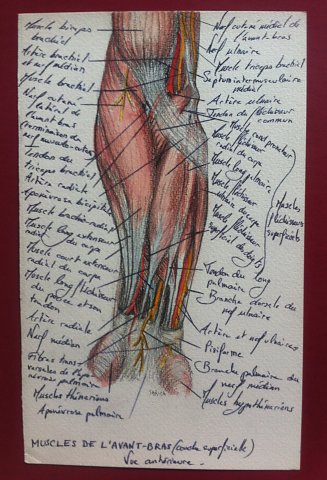 Muscle biceps
brachial
Artère brachial
et nerf médian
Muscle brachial
Nerf cutané
latéral de
l'avant bras
(terminaison du
nerf musculo-cutané)
Tendon du
biceps brachial
Artère radiale
Aponévrose bicipitale
Muscle brachio-radial
Muscle long extenseur
radial du carpe
Muscle court extenseur
radial du carpe
Muscle long fléchisseur
du pouce et son
tendon
Artère radiale
Nerf médian
Fibres trans-
versales de l'apo-
névrose palmaire
Muscles thénariens
Aponévrose palmaire
Nerf cutané médial de
l'avant-bras
Nerf ulnaire
Muscle triceps brachial
Septum intermusculaire
médial
Artère ulnaire
Tendon du fléchisseur
commun
Muscle rond pronateur
Muscle fléchisseur
radial du carpe
Muscle long palmaire
Muscle fléchisseur
ulnaire du carpe
Muscle fléchisseur
superficiel des doigts
Muscles
fléchisseurs
superficiels
Tendon du long
palmaire
Branche dorsale du
nerf ulnaire
Artère et nerf ulnaires
Pisiforme
Branche palmaire du
nerf médian
Muscles hypothénariens
MUSCLES DE L'AVANT-BRAS (couche superficielle)
Vue antérieure.